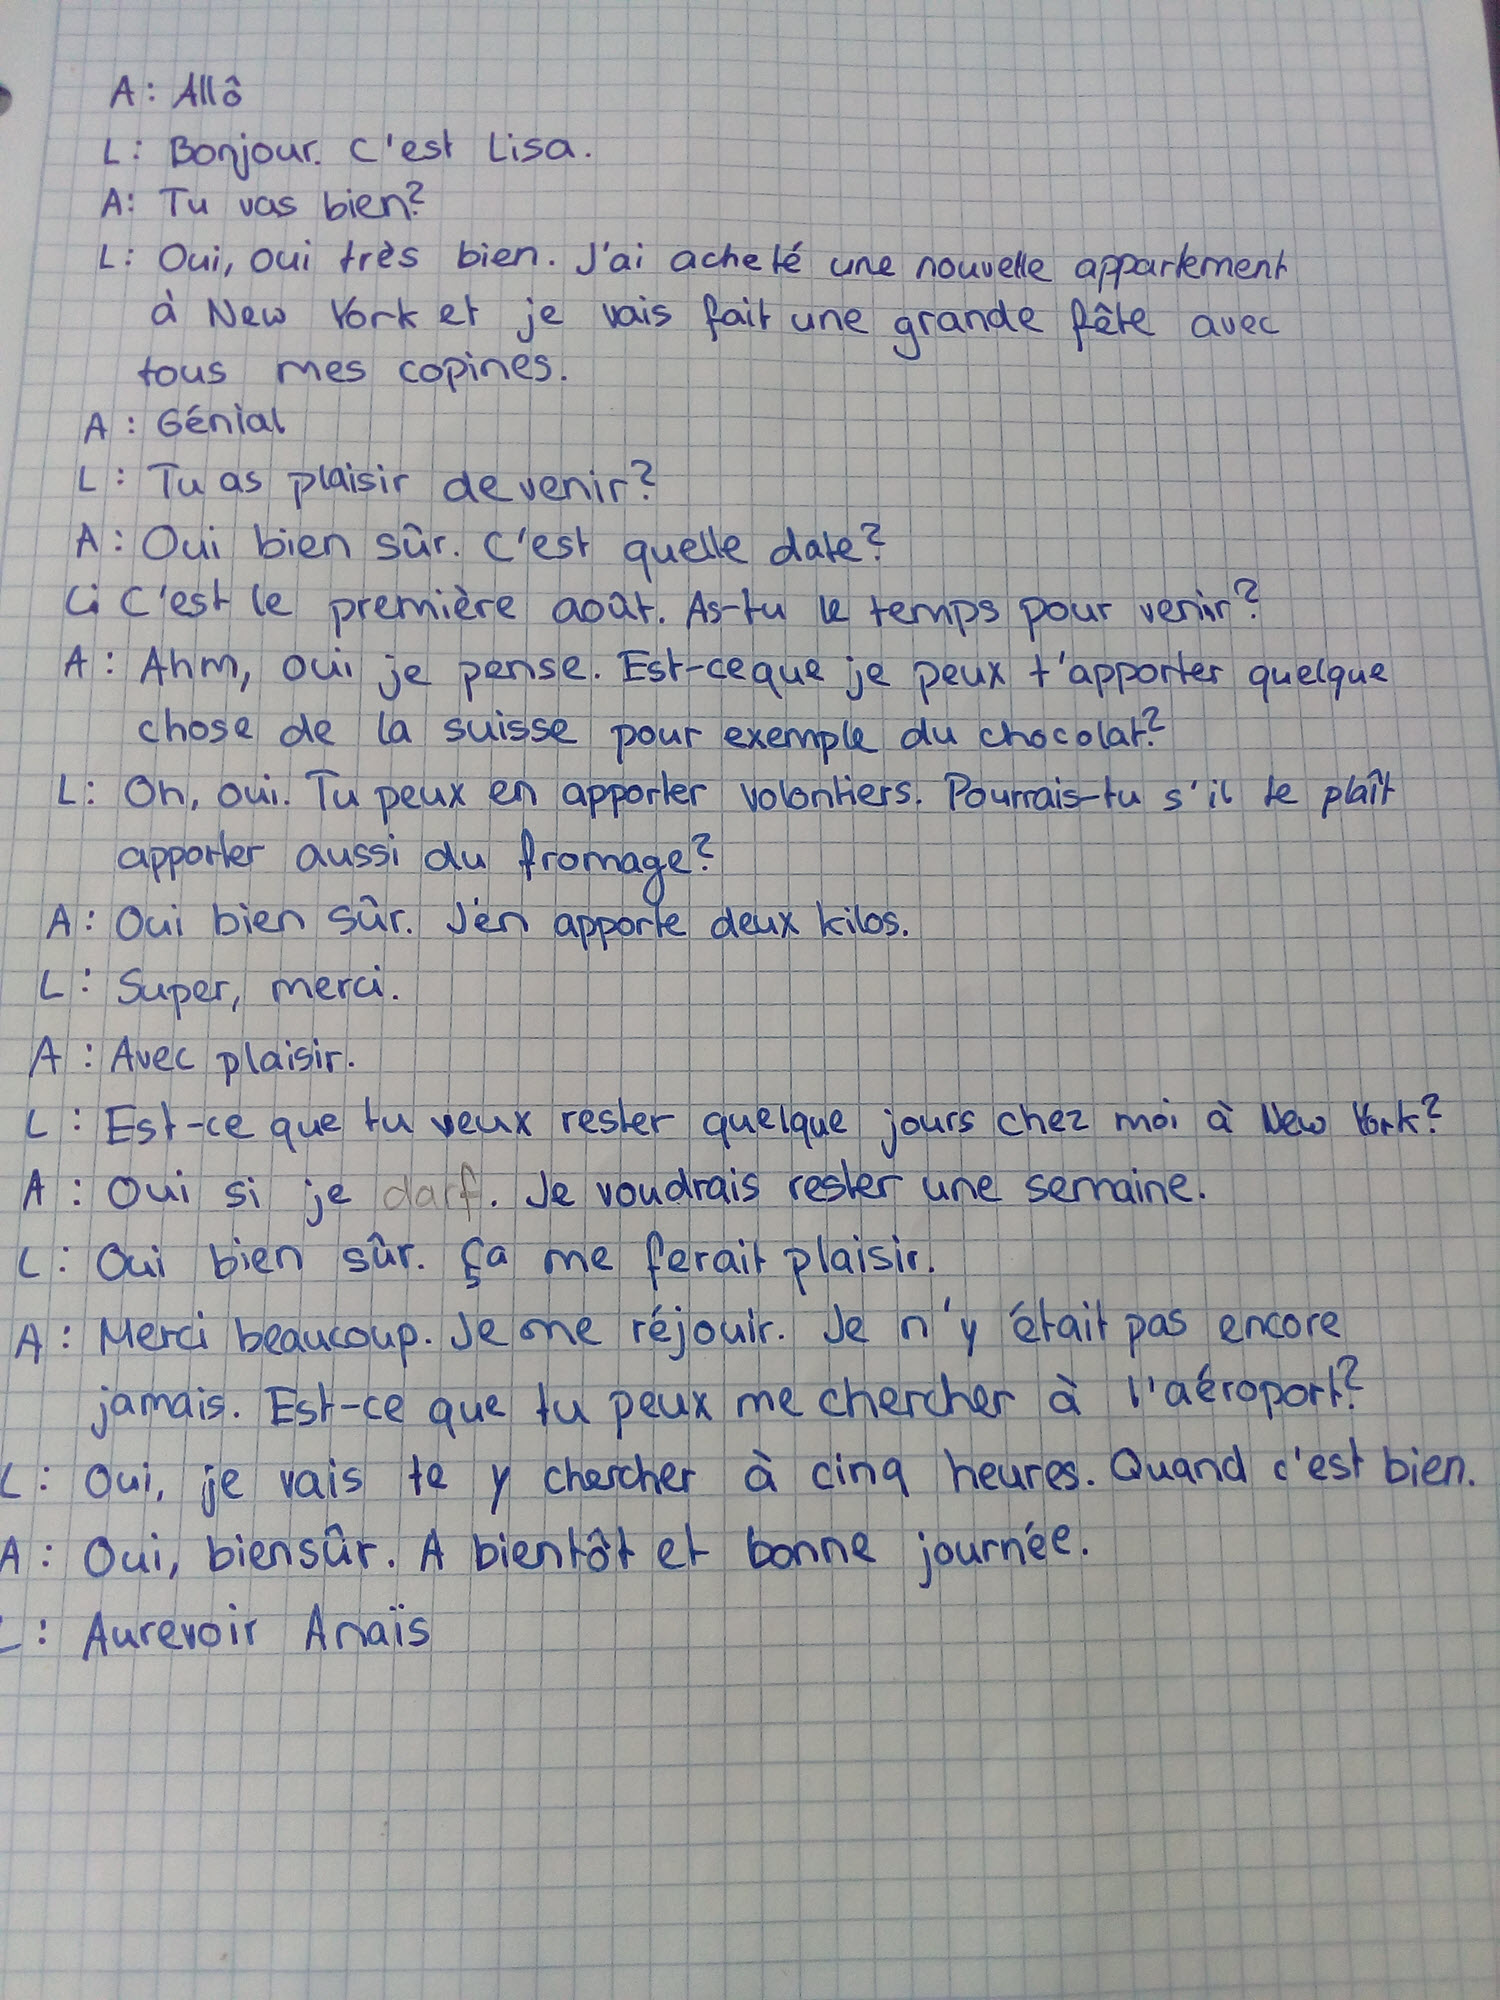 A: Allô
L: Bonjour. C'est Lisa.
A: Tu vas bien?
L: Oui, oui très bien. J'ai acheté une nouvelle appartement
à New York et je vais fait une grande fête avec
tous mes copines.
A: Génial
L: Tu as plaisir de venir?
A: Oui bien sûr. C'est quelle date?
L: C'est le première août. As-tu le temps pour venir?
A: Ahm, oui je pense. Est-ce que je peux t'apporter quelque
chose de la suisse pour exemple du chocolat?
L: Oh, oui. Tu peux en apporter volontiers. Pourrais-tu s'il te plaît
apporter aussi du fromage?
A: Oui bien sûr. J'en apporte deux kilos.
L: Super, merci.
A: Avec plaisir.
L: Est-ce que tu veux rester quelque jours chez moi à New York?
A: Oui si je darf. Je voudrais rester une semaine.
L: Oui bien sûr. Ça me ferait plaisir.
A: Merci beaucoup. Je me réjouir. Je n'y était pas encore
jamais. Est-ce que tu peux me chercher à l'aéroport?
L: Oui, je vais te y chercher à cinq heures. Quand c'est bien.
A: Oui, bien sûr. A bientôt et bonne journée.
L: Aurevoir Anaïs